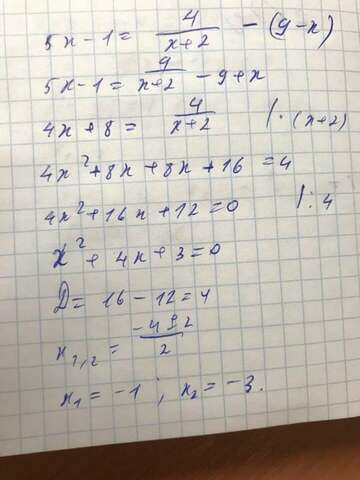 5x - 1 = 4/(x+2) - (9-x)
5x - 1 = 4/(x+2) - 9 + x
4x + 8 = 4/(x+2) | · (x+2)
4x² + 8x + 8x + 16 = 4
4x² + 16x + 12 = 0 | : 4
x² + 4x + 3 = 0
D = 16 - 12 = 4
x₁,₂ = (-4 ± 2)/2
x₁ = -1 ; x₂ = -3.